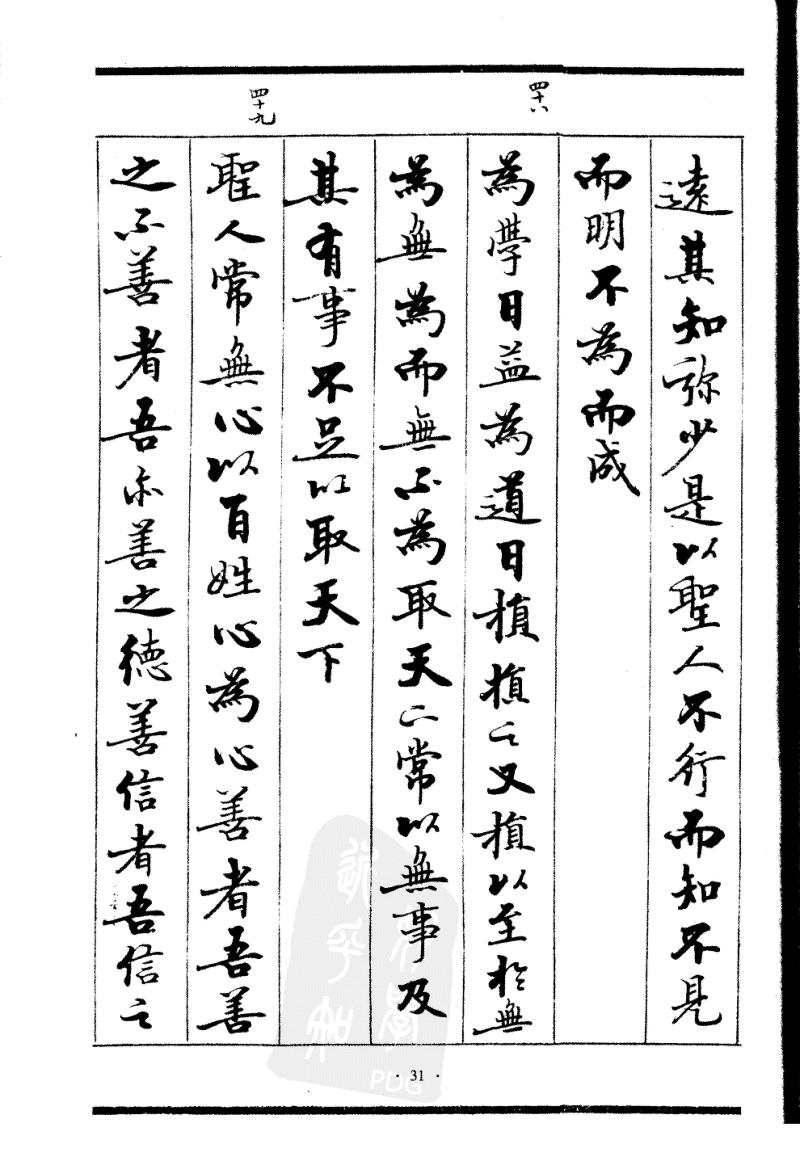 遠其知弥少是以聖人不行而知不見
而明不為而成
四十八
為學日益為道日損損之又損以至於無
為無為而無不為取天下常以無事及
其有事不足以取天下
四十九
聖人常無心以百姓心為心善者吾善
之不善者吾亦善之徳善信者吾信之
· 31 ·
PDG